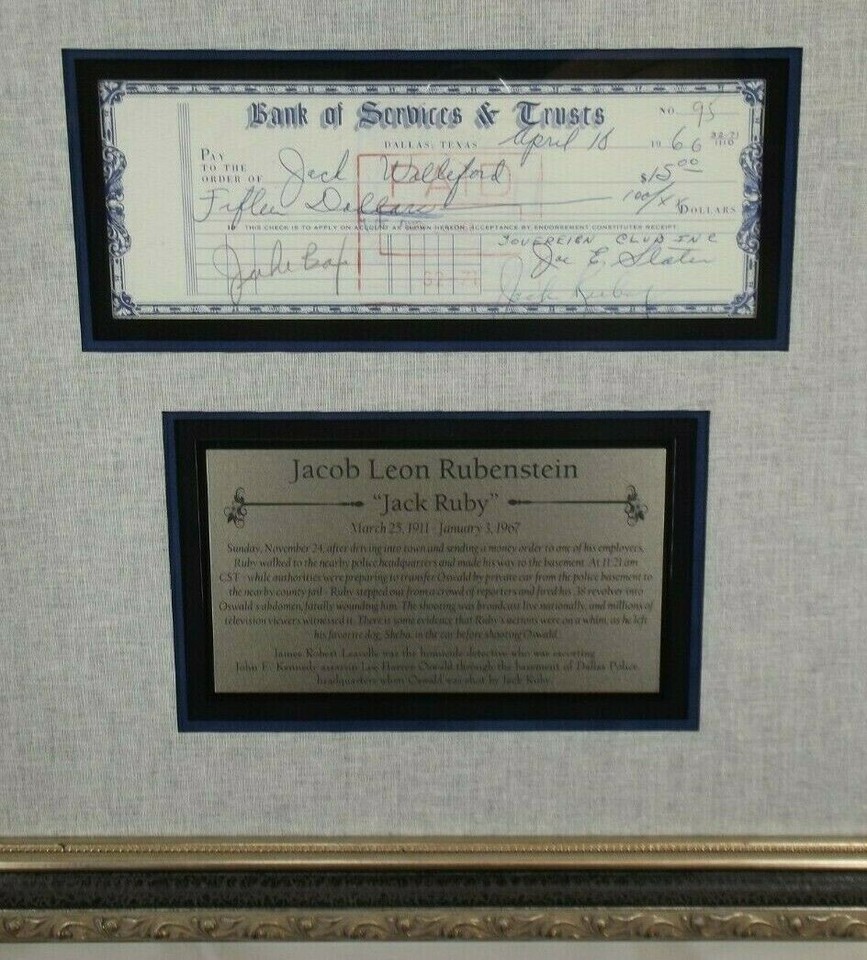 Bank of Services & Trusts
NO. 95
DALLAS, TEXAS April 18 1966 32-71 1110
PAY TO THE ORDER OF Jack Walleford $15.00
Fifteen Dollars 100/xx DOLLARS
THIS CHECK IS TO APPLY ON ACCOUNT AS SHOWN HEREON, ACCEPTANCE BY ENDORSEMENT CONSTITUTES RECEIPT.
PAID
SOVEREIGN CLUB INC
Joe E. Slater
Jack Ruby
Jacob Leon Rubenstein
"Jack Ruby"
March 25, 1911 - January 3, 1967
Sunday, November 24, after driving into town and sending a money order to one of his employees,
Ruby walked to the nearby police headquarters and made his way to the basement. At 11:21 am
CST - while authorities were preparing to transfer Oswald by private car from the police basement to
the nearby county jail - Ruby stepped out from a crowd of reporters and fired his .38 revolver into
Oswald's abdomen, fatally wounding him. The shooting was broadcast live nationally, and millions of
television viewers witnessed it. There is some evidence that Ruby's actions were on a whim, as he left
his favorite dog, Sheba, in the car before shooting Oswald.
James Robert Leavelle was the homicide detective who was escorting
John F. Kennedy assassin Lee Harvey Oswald through the basement of Dallas Police
headquarters when Oswald was shot by Jack Ruby.